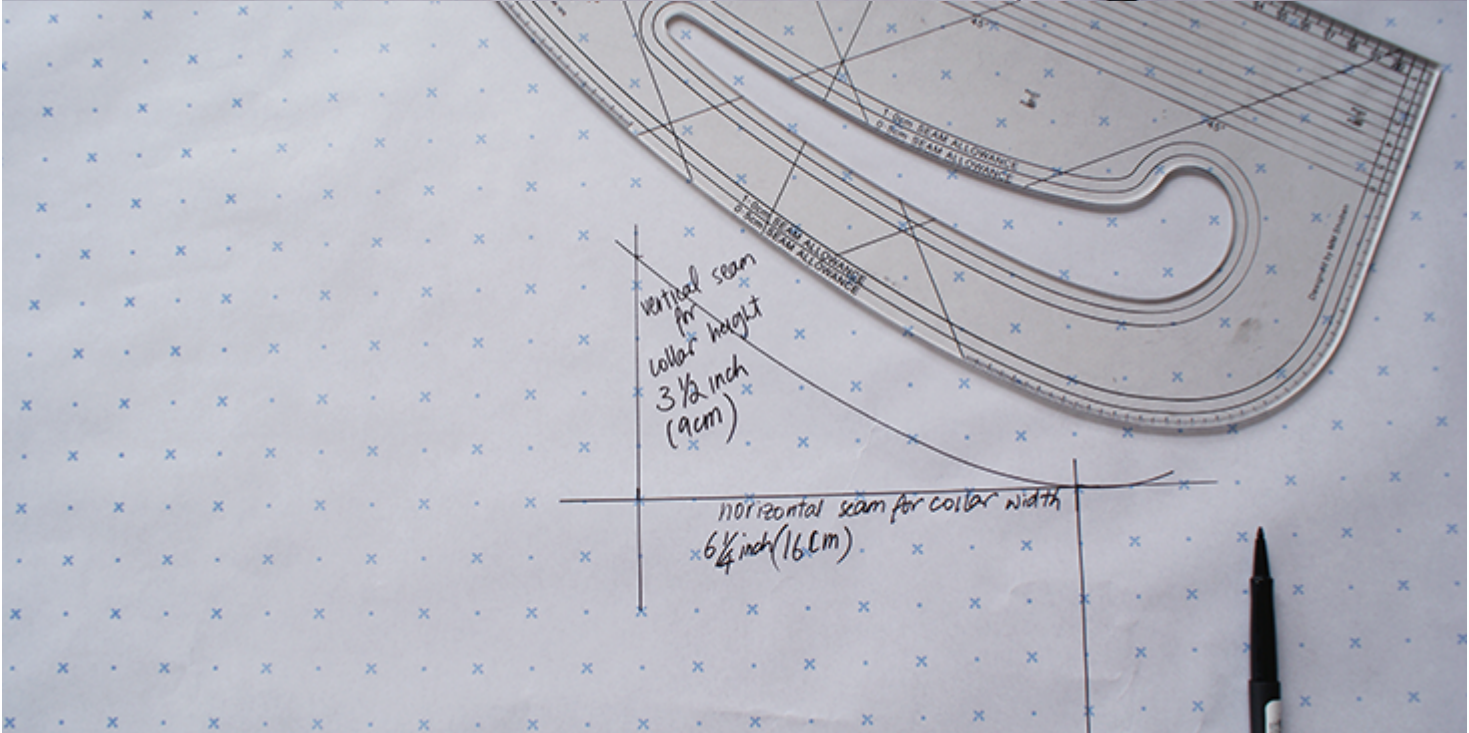 45°
45°
1·0cm SEAM ALLOWANCE
0·5cm SEAM ALLOWANCE
1·0cm SEAM ALLOWANCE
0·5cm SEAM ALLOWANCE
vertical seam
for
collar height
3 1/2 inch
(9cm)
horizontal seam for collar width
6 1/4 inch (16cm)